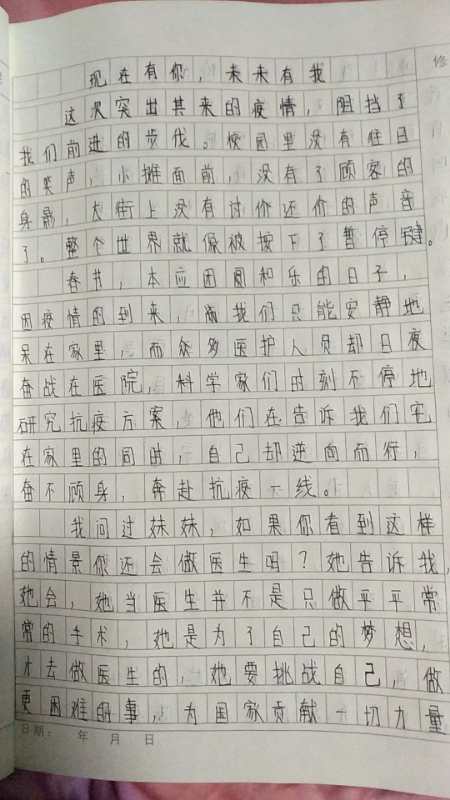 现在有你，未来有我
这次突出其来的疫情，阻挡了
我们前进的步伐。校园里没有往日
的笑声，小摊面前，没有了顾客的
身影，大街上没有讨价还价的声音
了。整个世界就像被按下了暂停键。
春节，本应团圆和乐的日子，
因疫情的到来，而我们只能安静地
呆在家里，而众多医护人员却日夜
奋战在医院，科学家们时刻不停地
研究抗疫方案，他们在告诉我们宅
在家里的同时，自己却逆向而行，
奋不顾身，奔赴抗疫一线。
我问过妹妹，如果你看到这样
的情景你还会做医生吗？她告诉我，
她会，她当医生并不是只做平平常
常的手术，她是为了自己的梦想，
才去做医生的，她要挑战自己，做
更困难的事，为国家贡献一切力量
日期： 年 月 日